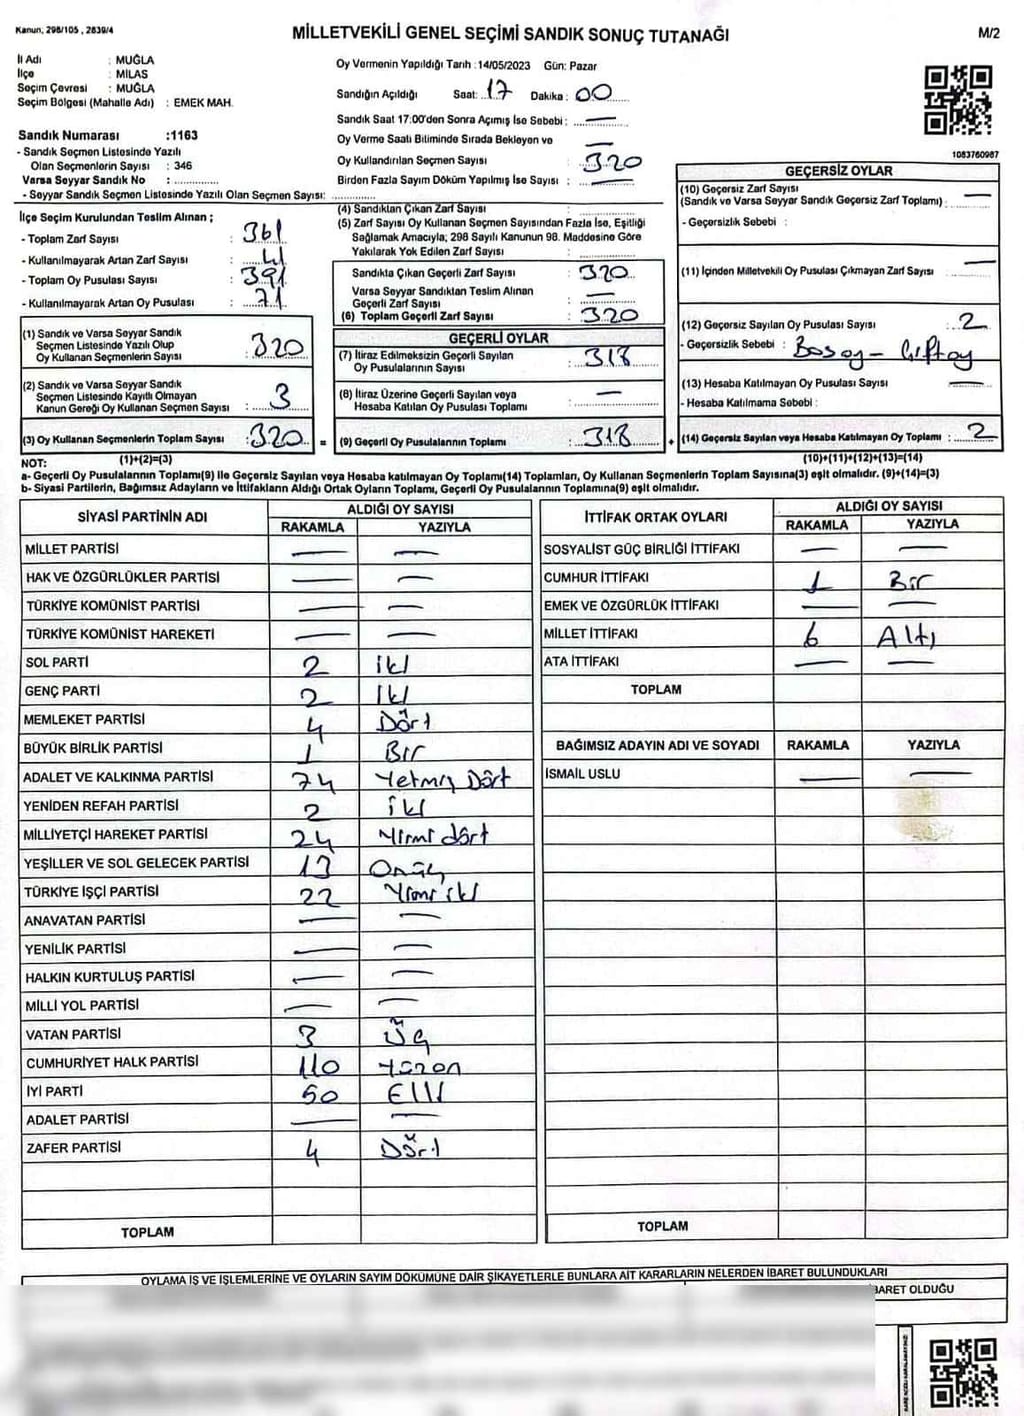 Kanun, 298/105 , 2839/4
MİLLETVEKİLİ GENEL SEÇİMİ SANDIK SONUÇ TUTANAĞI
M/2
İl Adı : MUĞLA
İlçe : MİLAS
Seçim Çevresi : MUĞLA
Seçim Bölgesi (Mahalle Adı) : EMEK MAH.
Sandık Numarası :1163
- Sandık Seçmen Listesinde Yazılı
Olan Seçmenlerin Sayısı : 346
Varsa Seyyar Sandık No :
- Seyyar Sandık Seçmen Listesinde Yazılı Olan Seçmen Sayısı:
Oy Vermenin Yapıldığı Tarih :14/05/2023 Gün: Pazar
Sandığın Açıldığı Saat: 17 Dakika : 00
Sandık Saat 17:00'den Sonra Açımış İse Sebebi : —
Oy Verme Saati Bitiminde Sırada Bekleyen ve
Oy Kullandırılan Seçmen Sayısı : 320
Birden Fazla Sayım Döküm Yapılmış İse Sayısı : —
1083760987
İlçe Seçim Kurulundan Teslim Alınan ;
- Toplam Zarf Sayısı : 361
- Kullanılmayarak Artan Zarf Sayısı : 41
- Toplam Oy Pusulası Sayısı : 391
- Kullanılmayarak Artan Oy Pusulası : 71
(1) Sandık ve Varsa Seyyar Sandık
Seçmen Listesinde Yazılı Olup
Oy Kullanan Seçmenlerin Sayısı : 320
(2) Sandık ve Varsa Seyyar Sandık
Seçmen Listesinde Kayıtlı Olmayan
Kanun Gereği Oy Kullanan Seçmen Sayısı : 3
(3) Oy Kullanan Seçmenlerin Toplam Sayısı : 320 =
(1)+(2)=(3)
(4) Sandıktan Çıkan Zarf Sayısı :
(5) Zarf Sayısı Oy Kullanan Seçmen Sayısından Fazla İse, Eşitliği
Sağlamak Amacıyla; 298 Sayılı Kanunun 98. Maddesine Göre
Yakılarak Yok Edilen Zarf Sayısı :
Sandıkta Çıkan Geçerli Zarf Sayısı : 320
Varsa Seyyar Sandıktan Teslim Alınan
Geçerli Zarf Sayısı : —
(6) Toplam Geçerli Zarf Sayısı : 320
GEÇERLİ OYLAR
(7) İtiraz Edilmeksizin Geçerli Sayılan
Oy Pusulalarının Sayısı : 318
(8) İtiraz Üzerine Geçerli Sayılan veya
Hesaba Katılan Oy Pusulası Toplamı : —
(9) Geçerli Oy Pusulalarının Toplamı : 318 +
GEÇERSİZ OYLAR
(10) Geçersiz Zarf Sayısı
(Sandık ve Varsa Seyyar Sandık Geçersiz Zarf Toplamı) : —
- Geçersizlik Sebebi :
(11) İçinden Milletvekili Oy Pusulası Çıkmayan Zarf Sayısı : —
(12) Geçersiz Sayılan Oy Pusulası Sayısı : 2
- Geçersizlik Sebebi : Bosoy - Çiftoy
(13) Hesaba Katılmayan Oy Pusulası Sayısı : —
- Hesaba Katılmama Sebebi :
(14) Geçersiz Sayılan veya Hesaba Katılmayan Oy Toplamı : 2
(10)+(11)+(12)+(13)=(14)
NOT:
a- Geçerli Oy Pusulalarının Toplamı(9) ile Geçersiz Sayılan veya Hesaba katılmayan Oy Toplamı(14) Toplamları, Oy Kullanan Seçmenlerin Toplam Sayısına(3) eşit olmalıdır. (9)+(14)=(3)
b- Siyasi Partilerin, Bağımsız Adayların ve İttifakların Aldığı Ortak Oyların Toplamı, Geçerli Oy Pusulalarının Toplamına(9) eşit olmalıdır.
SİYASİ PARTİNİN ADI ALDIĞI OY SAYISI
RAKAMLA YAZIYLA
MİLLET PARTİSİ — —
HAK VE ÖZGÜRLÜKLER PARTİSİ — —
TÜRKİYE KOMÜNİST PARTİSİ — —
TÜRKİYE KOMÜNİST HAREKETİ — —
SOL PARTİ 2 iki
GENÇ PARTİ 2 iki
MEMLEKET PARTİSİ 4 Dört
BÜYÜK BİRLİK PARTİSİ 1 Bir
ADALET VE KALKINMA PARTİSİ 74 Yetmiş Dört
YENİDEN REFAH PARTİSİ 2 iki
MİLLİYETÇİ HAREKET PARTİSİ 24 Yirmi dört
YEŞİLLER VE SOL GELECEK PARTİSİ 13 Onüç
TÜRKİYE İŞÇİ PARTİSİ 22 Yirmi iki
ANAVATAN PARTİSİ — —
YENİLİK PARTİSİ — —
HALKIN KURTULUŞ PARTİSİ — —
MİLLİ YOL PARTİSİ — —
VATAN PARTİSİ 3 Üç
CUMHURİYET HALK PARTİSİ 110 Yüzon
İYİ PARTİ 50 Elli
ADALET PARTİSİ — —
ZAFER PARTİSİ 4 Dört
TOPLAM
İTTİFAK ORTAK OYLARI ALDIĞI OY SAYISI
RAKAMLA YAZIYLA
SOSYALİST GÜÇ BİRLİĞİ İTTİFAKI — —
CUMHUR İTTİFAKI 1 Bir
EMEK VE ÖZGÜRLÜK İTTİFAKI — —
MİLLET İTTİFAKI 6 Altı
ATA İTTİFAKI — —
TOPLAM
BAĞIMSIZ ADAYIN ADI VE SOYADI RAKAMLA YAZIYLA
İSMAİL USLU — —
TOPLAM
OYLAMA İŞ VE İŞLEMLERİNE VE OYLARIN SAYIM DÖKÜMÜNE DAİR ŞİKAYETLERLE BUNLARA AİT KARARLARIN NELERDEN İBARET BULUNDUKLARI
BARET OLDUĞU